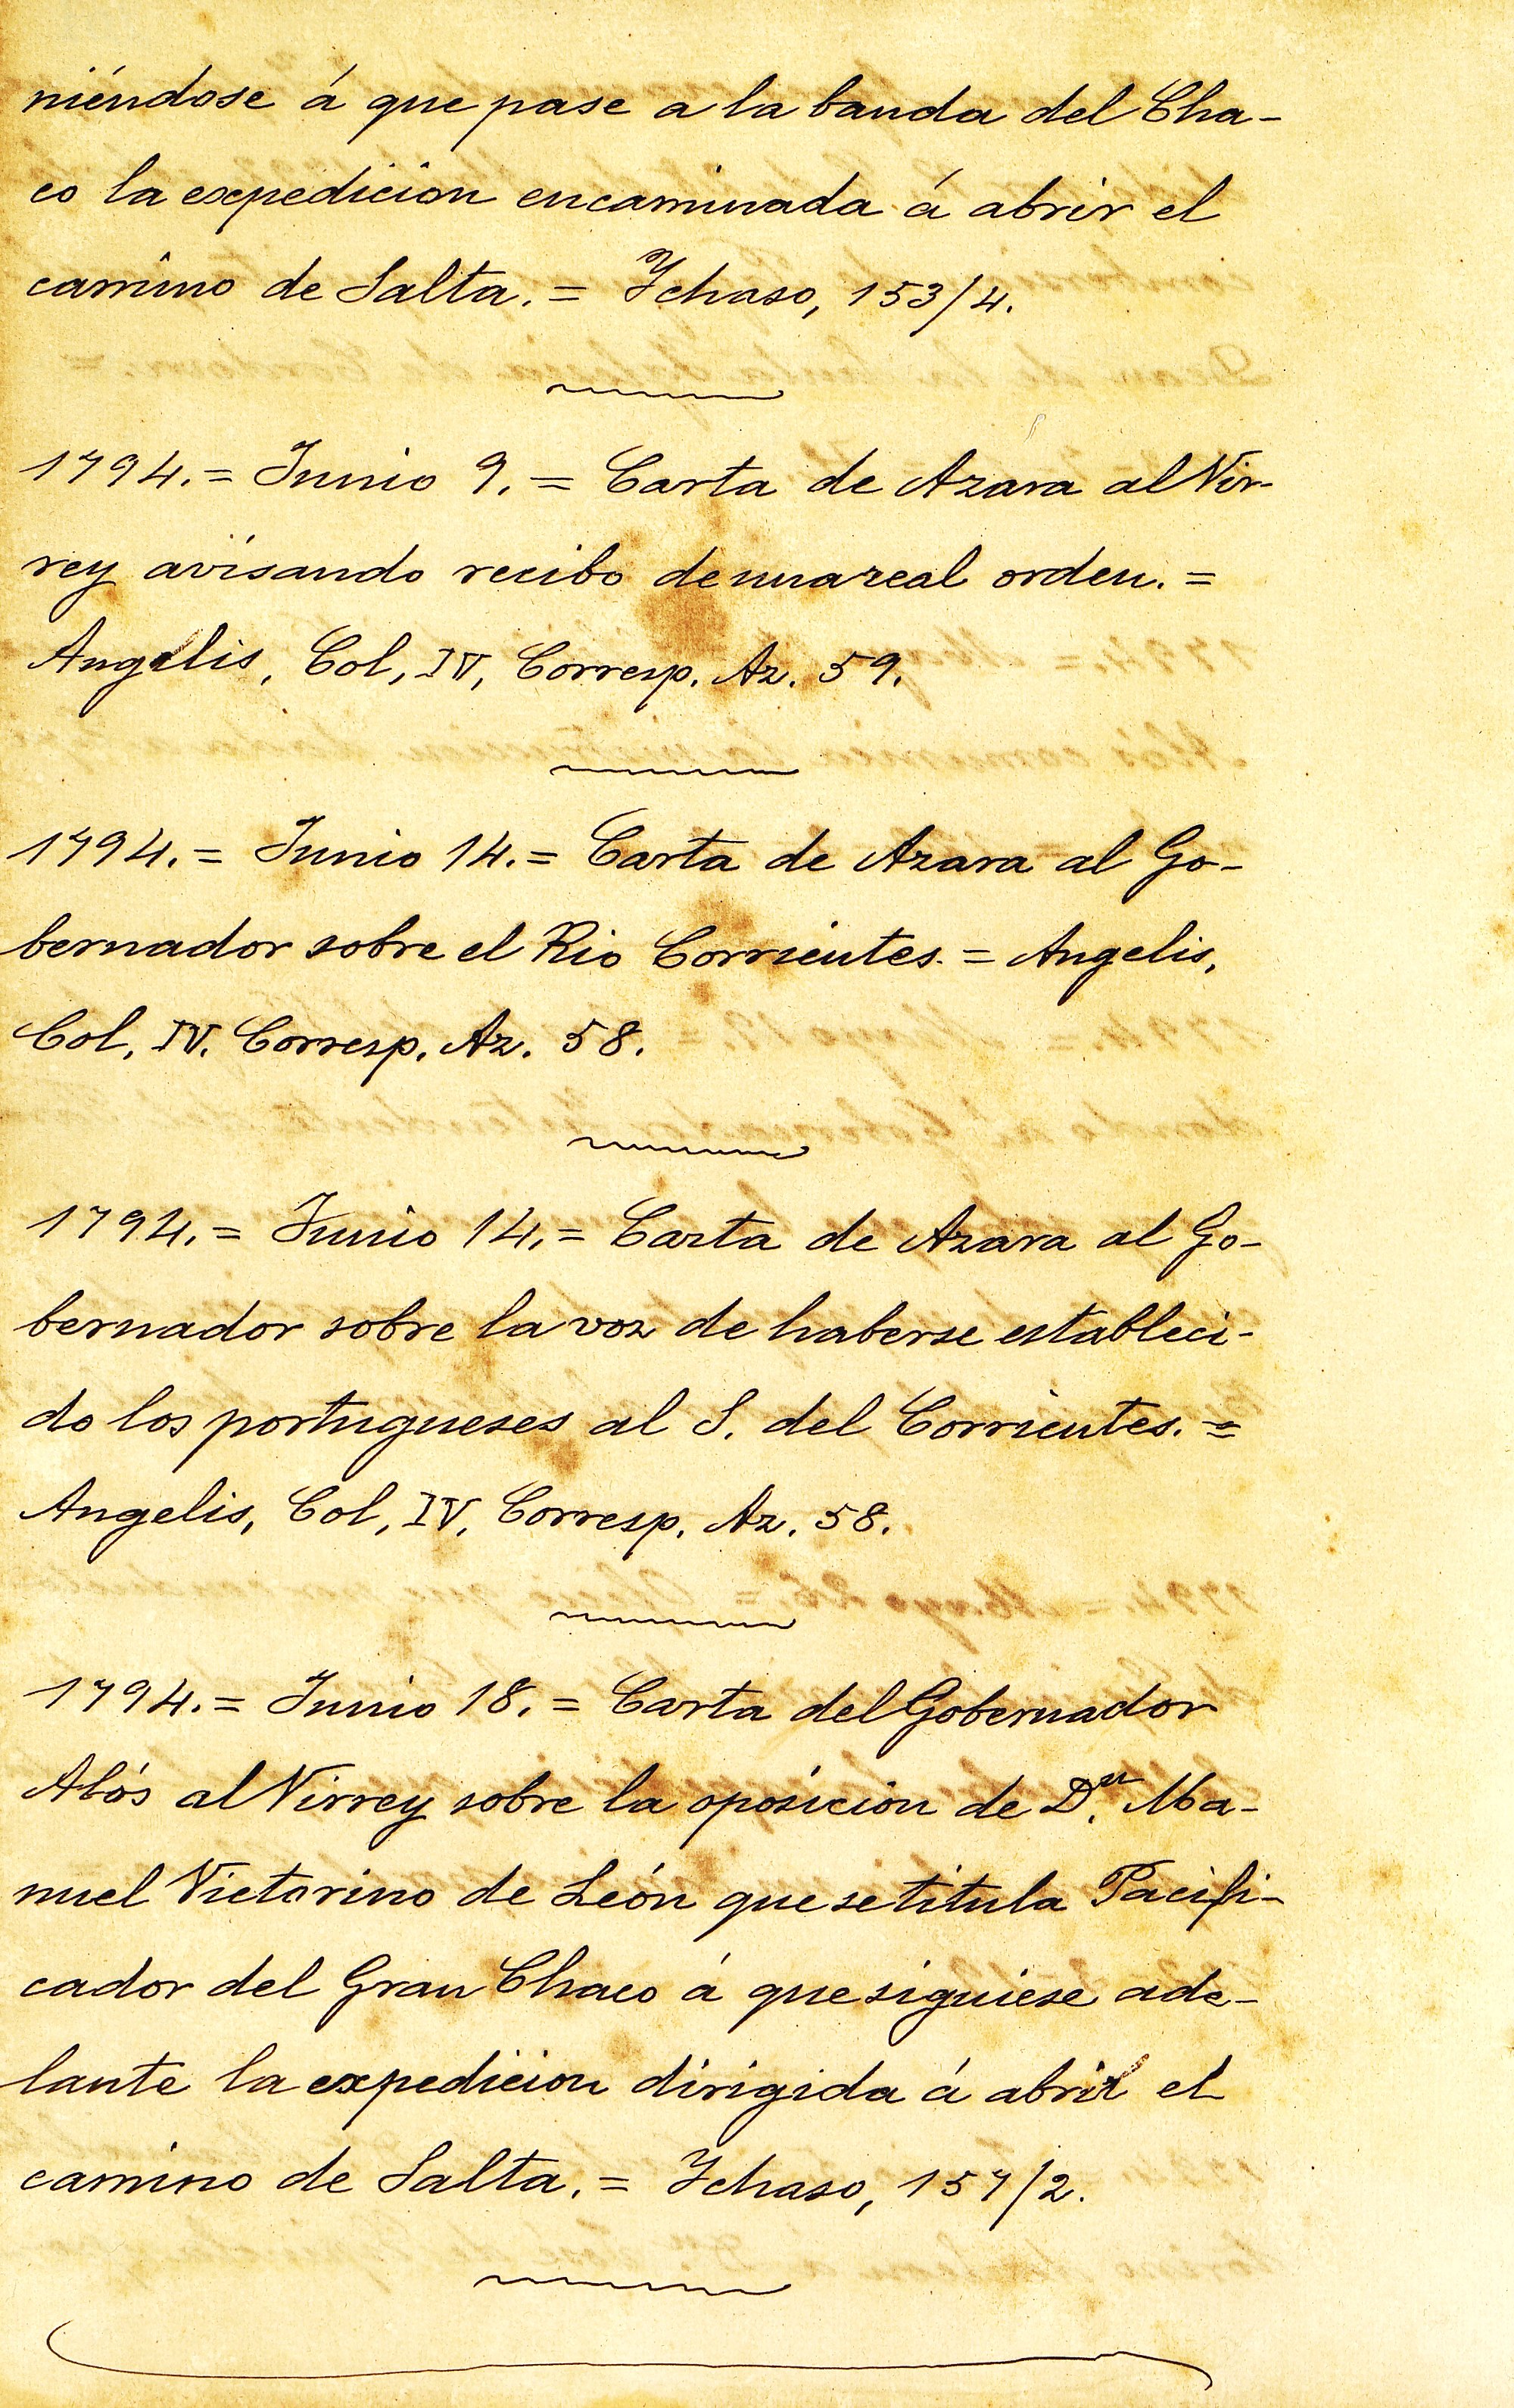 niéndose á que pase a la banda del Cha-
co la expedición encaminada á abrir el
camino de Salta. = Ichaso, 153/4.
1794. = Junio 9. = Carta de Azara al Vir-
rey avisando recibo de una real orden. =
Angelis, Col, IV, Corresp. Az. 59.
1794. = Junio 14. = Carta de Azara al Go-
bernador sobre el Rio Corrientes. = Angelis,
Col, IV. Corresp. Az. 58.
1794. = Junio 14. = Carta de Azara al Go-
bernador sobre la voz de haberse estableci-
do los portugueses al S. del Corrientes. =
Angelis, Col, IV, Corresp. Az. 58.
1794. = Junio 18. = Carta del Gobernador
Alós al Virrey sobre la oposición de Dn. Ma-
nuel Victorino de León que se titula Pacifi-
cador del Gran Chaco á que siguiese ade-
lante la expedicion dirigida á abrir el
camino de Salta. = Ichaso, 157/2.